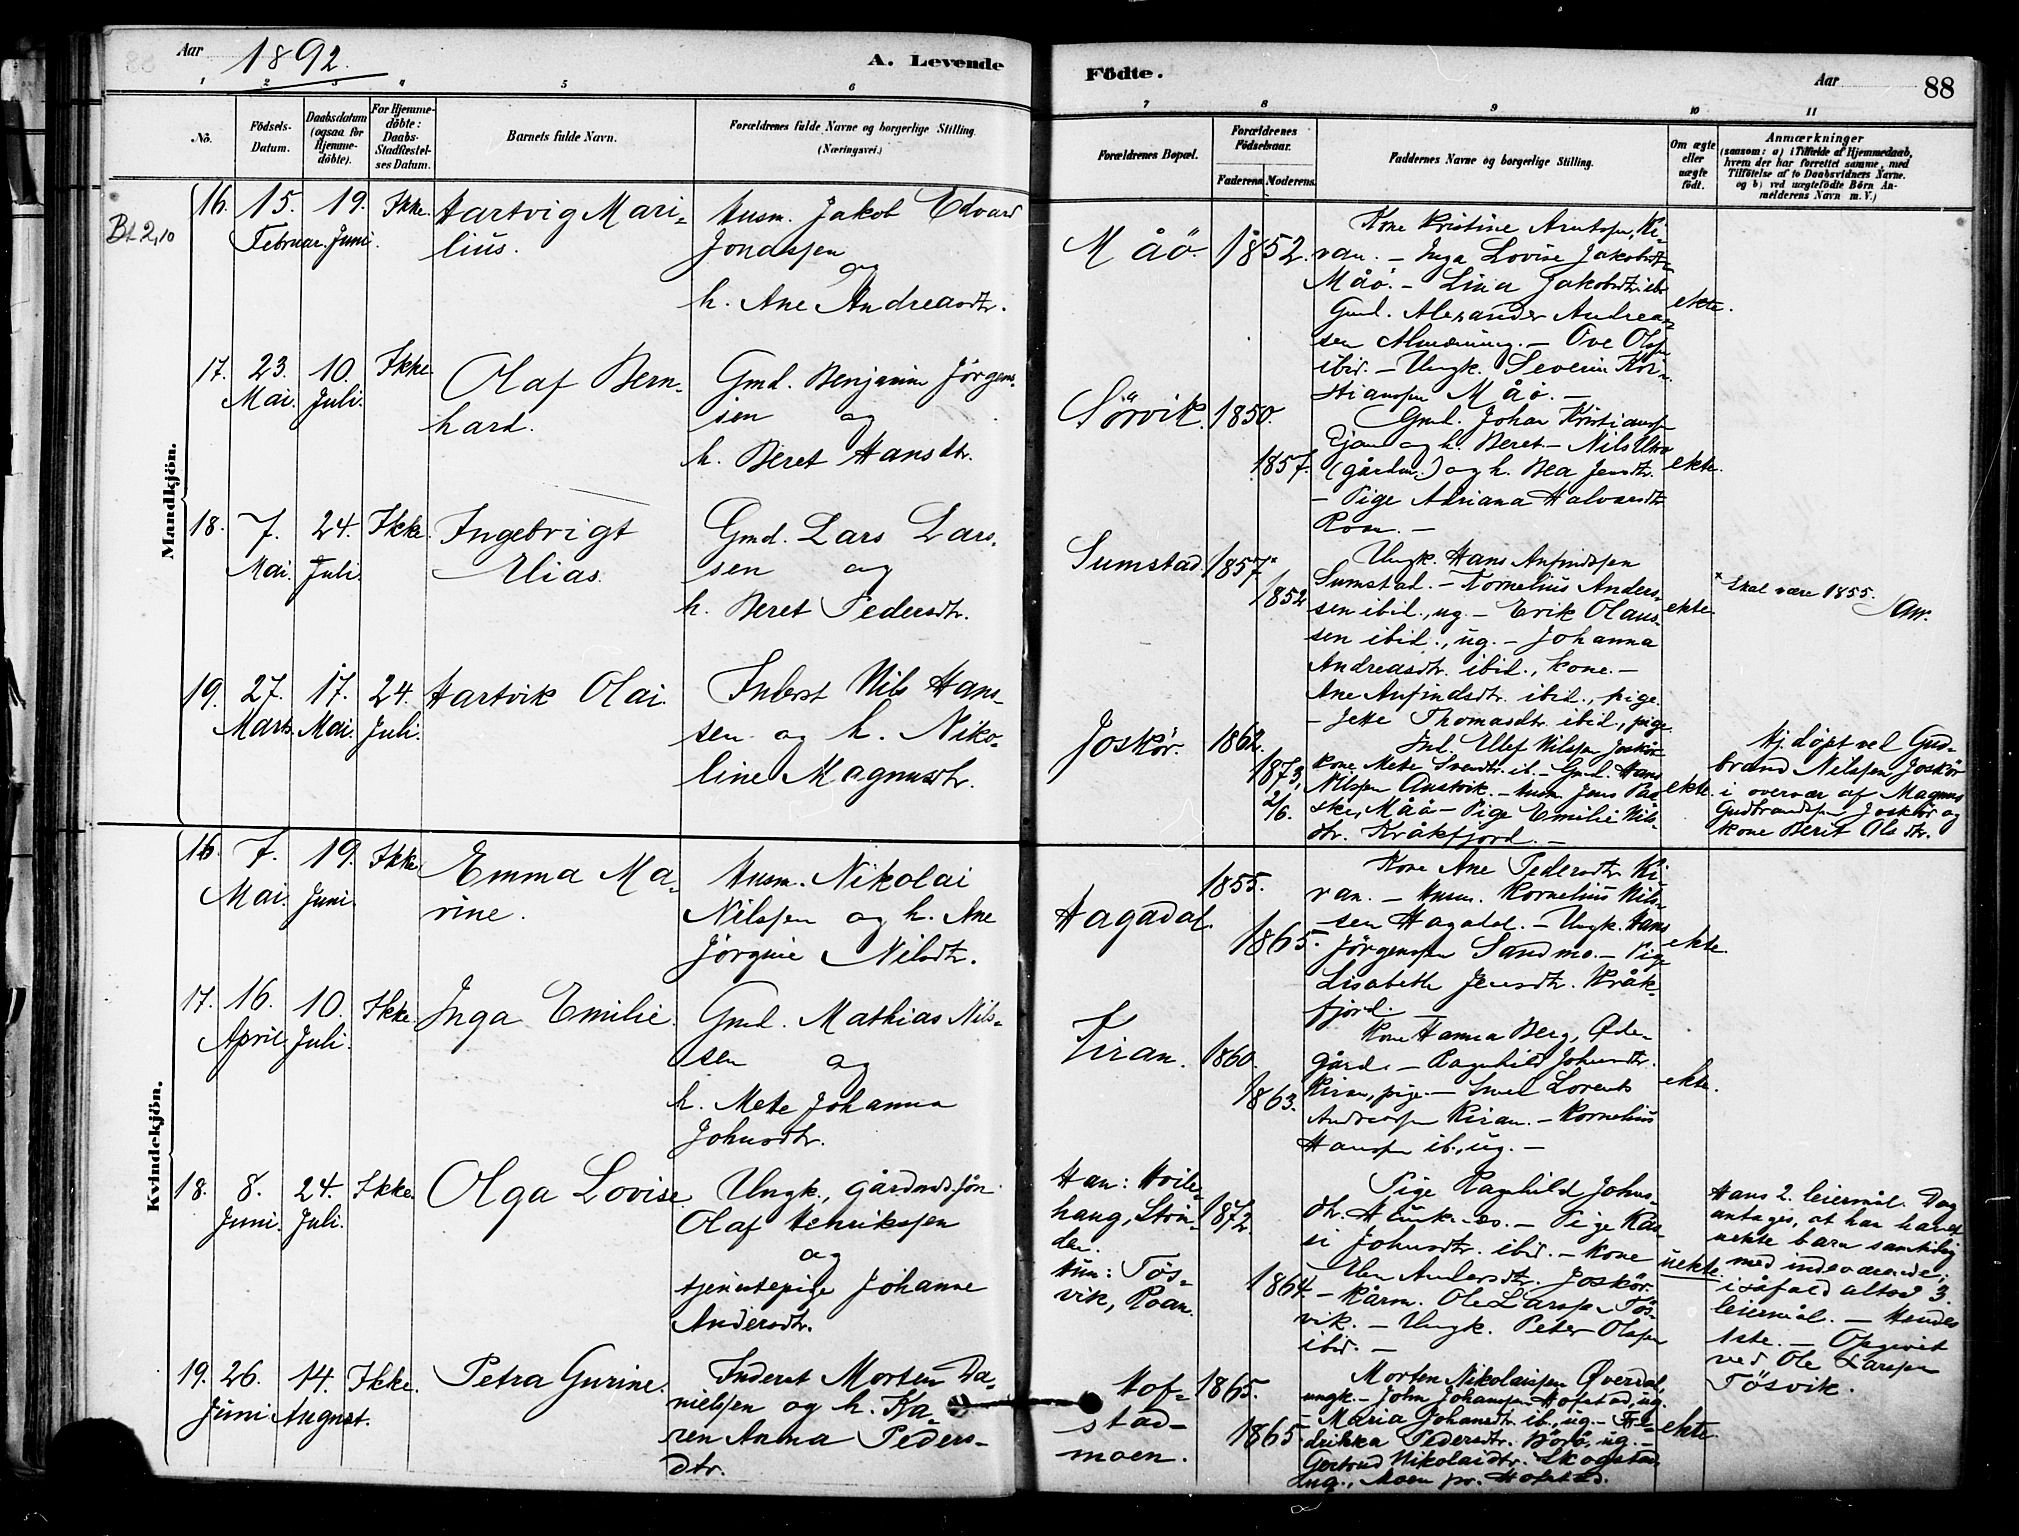 Aar 1892.
A. Levende
Födte.
Aar
88
1 2 3 4 5 6
7 8 9 10 11
No.
Födsels-
Datum.
Daabsdatum
(ogsaa for
Hjemme-
döbte).
For Hjemme-
döbte:
Daabs-
Stadfæstel-
ses Datum.
Barnets fulde Navn.
Forældrenes fulde Navne og borgerlige Stilling.
(Næringsvei.)
Forældrenes Bopæl.
Forældrenes
Födselsaar.
Faderens. Moderens.
Faddernes Navne og borgerlige Stilling.
Om ægte
eller
uægte
födt.
Anmærkninger
(saasom: a) i Tilfælde af Hjemmedaab,
hvem der har forrettet samme, med
Tilföielse af to Daabsvidners Navne.
og b) ved uægtefödte Börn An-
melderens Navn m. V.)
Mandkjön.
Bt 2,10
16. 15. Februar. 19. Juni. Ikke.
Hartvig Mari-
lius.
Husm. Jakob Edvard
Jonassen
og
h. Ane Andreasdtr.
Måö. 1852.
Kone Kristine Arntsen, Ki-
ran. - Inga Lovise Jakobsdtr
Måö. - Lina Jakobsdtr ibd
Gmd. Alexander Andrea-
sen Almenning. - Ove Olsen
ibid. - Ungk. Severin Kri-
stiansen Måö. -
ekte.
17. 23. Mai. 10. Juli. Ikke
Olaf Bern-
hard.
Gmd. Benjamin Jörgens-
sen og
h. Beret Hansdtr.
Sörvik. 1850.
1857.
Gmd. Johan Kristiansen
og h. Beret - Nils
(gårdm.) og h. Bea Jensdtr.
- Pige Adriana Halvardsdtr
Roan. -
ekte.
18. 7. Mai. 24. Juli. Ikke.
Ingebrigt
Elias.
Gmd. Lars Lars-
sen og
h. Beret Pedersdtr.
Sumstad 1857*
1852
Ungk. Hans Anfindsen
Sumstad. - Kornelius Anders-
sen ibid., ug. - Erik Olaus-
sen ibid., ug. - Johanna
Andreasdtr. ibid., kone. -
Ane Anfindsdtr. ibid., pige.
- Jette Thomasdtr. ibid., pige.
ekte
* Skal være 1855.
19. 27. Marts. 17. Mai. 24. Juli.
Hartvik Olai.
Inderst Nils Hans-
sen og h. Niko-
line Magnusdtr.
Joskör. 1862.
1873,
2/6.
Ind. Ellef Nilsen Joskör
kone Mete Svendtr. ib. - Gmd. Hans
Nilssen Austvik. - Husm Jens Pas-
ske, Måö - Pige Emilie Nils-
dtr. Kråkfjord. -
ekte.
Hj.døpt ved Gud-
brand Nilssen Joskör
i overvær af Magnus
Gudbrandsen Joskör og
kone Berit Olsdtr.
Kvindekjön.
16. 7. Mai. 19. Juni. Ikke
Emma Ma-
rine.
Husm. Nikolai
Nilssen og h. Ane
Jörgine Nilsdtr.
Hagadal. 1855.
1865.
Kone Ane Pedersdtr. Ki-
ran. - Husm. Kornelius Nils-
sen Hagadal. - Ungk. Hans
Jörgensen Sandmo. - Pige
Lisabeth Jensdtr. Kråk-
fjord. -
ekte.
17. 16. April. 10. Juli. Ikke.
Inga Emilie.
Gmd. Mathias Nils-
sen og
h. Mete Johanna
Johnsdtr.
Kiran. 1860.
1863.
Kone Hanna Berg, Øde-
gård. - Ragnhild Johnsdtr.
Kiran, pige. - Lorents
Andreassen Kiran. - Kornelius
Hanssen ib., ug. -
ekte.
18. 8. Juni. 24. Juli. Ikke.
Olga Lovise
Ungk., gårdmdssön
Olaf Henrikssen
og
tjenestepige Johanne
Andersdtr.
Han: Hvile-
haug, Strin-
den.
Hun: Tös-
vik, Roan. 1872.
1864.
Pige Ragnhild Johns-
dtr. - Pige
Johnsdtr. ibid. - Kone
Andersdtr. Joskör.
- Kårm. Ole Larssen Tös-
vik. - Ungk. Peter Olsen
ibid. -
uekte.
Hans 2. leiermål. Dog
antages, at han havet
uekte barn samtidig
med indeværende;
i såfald altså 3.
leiermål. - Hendes
1ste. - Opgivet
ved Ole Larssen
Tösvik.
19. 26. Juni 14. August. Ikke.
Petra Gurine.
Inderst Morten Da-
nielssen og h. Ka-
ren Anna Peders-
dtr.
Hof-
stad-
moen. 1865.
1865
Morten Nikolaissen Øverdal,
ungk. - John Johansen Hofstad, ug.
- Maria Johansdtr. ib., ug. - Fre-
drikka Pedersdtr. Börö, ug. -
Gertrud Nikolaidtr. Skogstad,
ug., Moen pr. Hofstad.
ekte